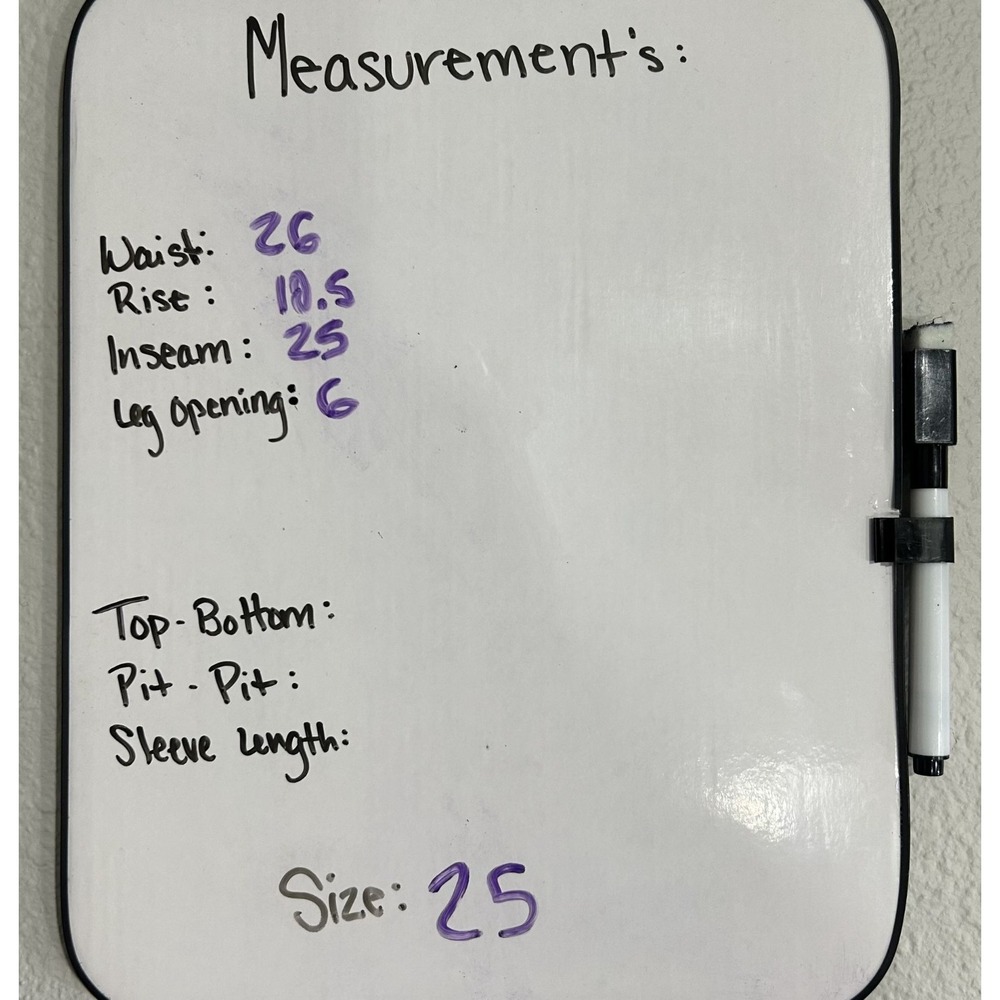 Measurement's:
Waist: 26
Rise: 10.5
Inseam: 25
Leg opening: 6
Top-Bottom:
Pit-Pit:
Sleeve Length:
Size: 25